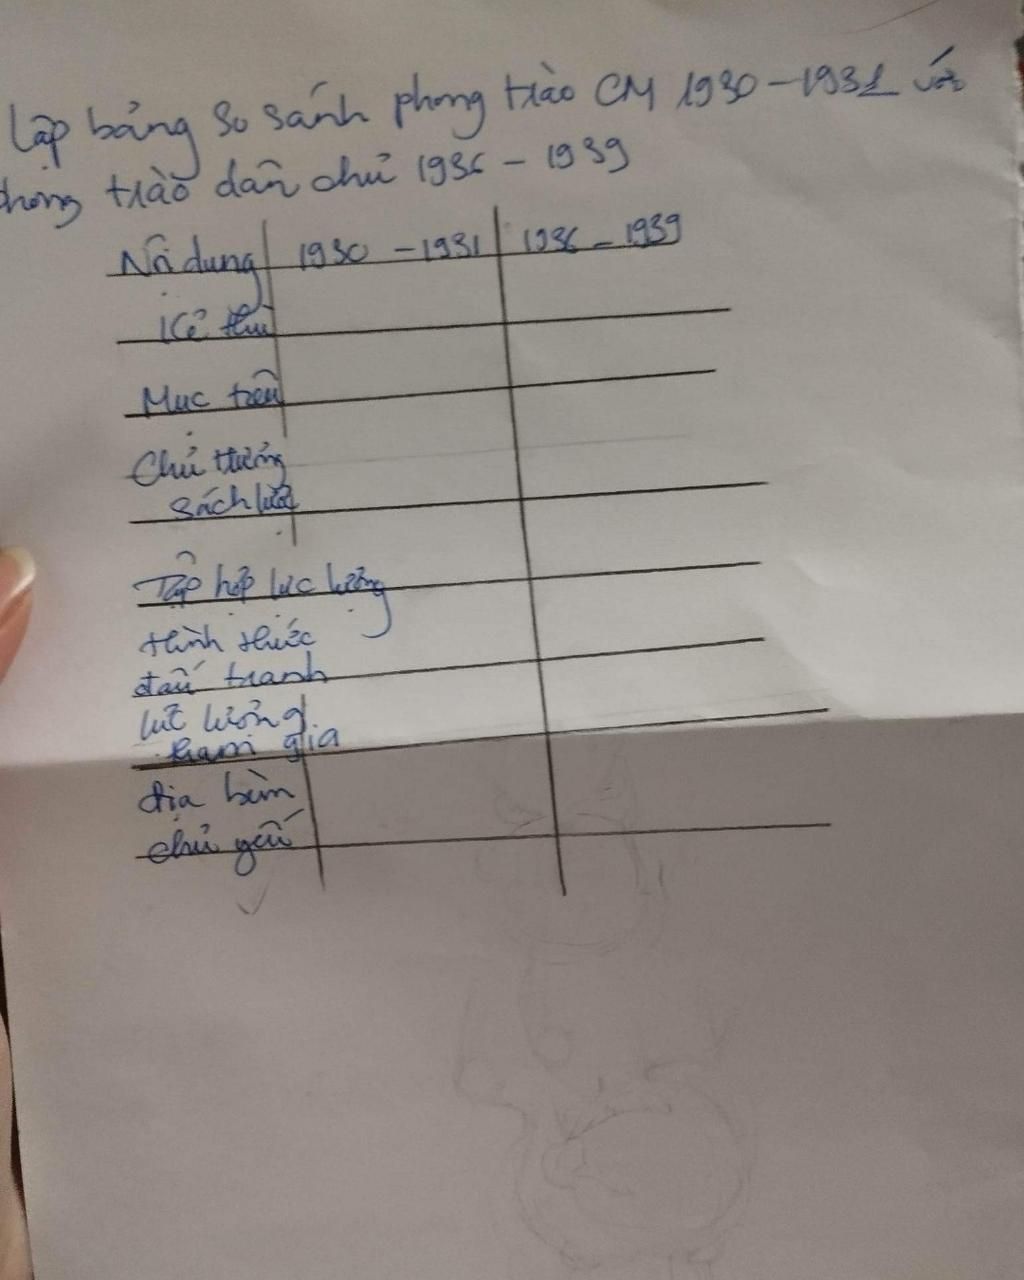 Lập bảng so sánh phong trào CM 1930-1931 với
phong trào dân chủ 1936 - 1939
Nội dung 1930 - 1931 1936 - 1939
Kẻ thù
Mục tiêu
Chủ trương
sách lược
Tập hợp lực lượng
Hình thức
đấu tranh
lực lượng
tham gia
địa bàn
chủ yếu